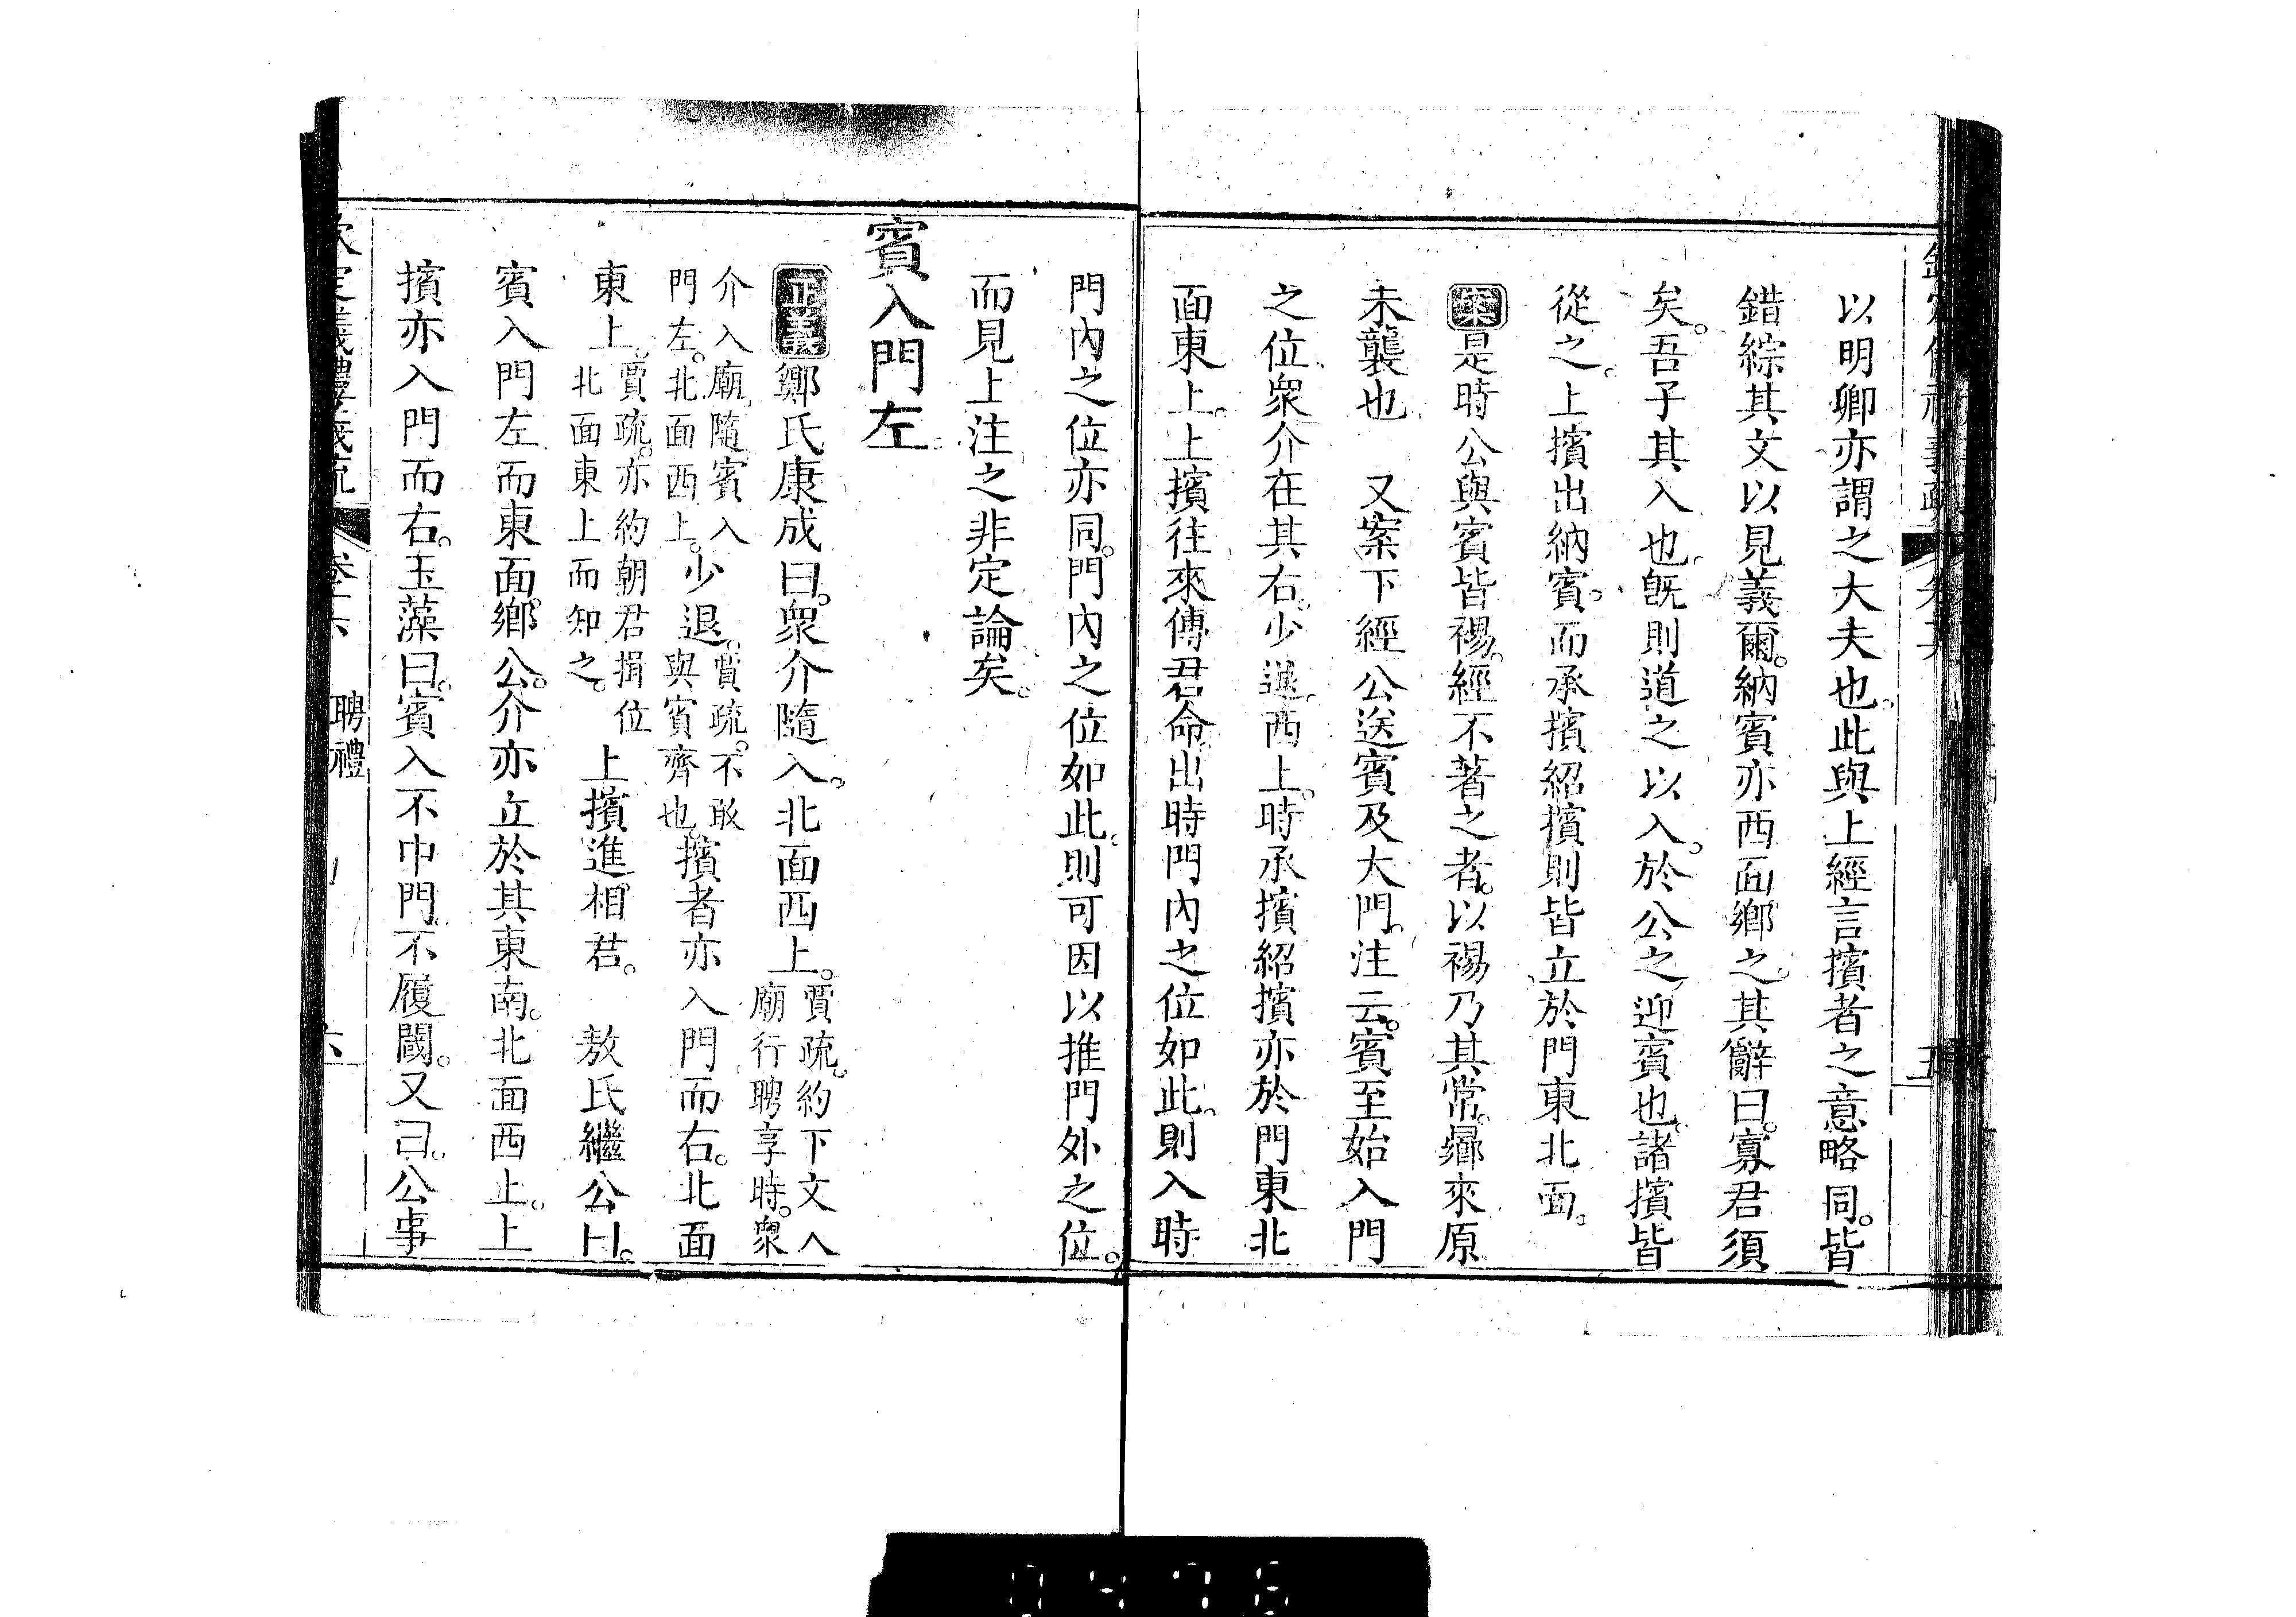 以明卿亦謂之大夫也。此與上經言擯者之意略同。皆
錯綜其文以見義爾。納賓亦西面鄉之。其辭曰。寡君須
矣。吾子其入也。旣則道之以入。於公之迎賓也。諸擯皆
從之。上擯出納賓。而承擯紹擯則皆立於門東北面。
案是時公與賓皆裼。經不著之者。以裼乃其常。歸來原
未襲也　又案下經公送賓及大門。注云。賓至始入門
之位。衆介在其右。少退。西上。時承擯紹擯亦於門東北
面東上。上擯往來傳君命。出時門內之位如此。則入時
門內之位亦同。門內之位如此。則可因以推門外之位。
而見上注之非定論矣。
賓入門左。
正義鄭氏康成曰。衆介隨入。北面西上。賈疏。約下文入廟行聘享時。衆
介入廟。隨賓入門左。北面西上。少退。賈疏。不敢與賓齊也。擯者亦入門而右。北面
東上。賈疏。亦約朝君揖位北面東上而知之。上擯進相君。　敖氏繼公曰。
賓入門左而東面。鄉公。介亦立於其東南。北面西上。上
擯亦入門而右。玉藻曰。賓入不中門。不履閾。又曰。公事
聘禮